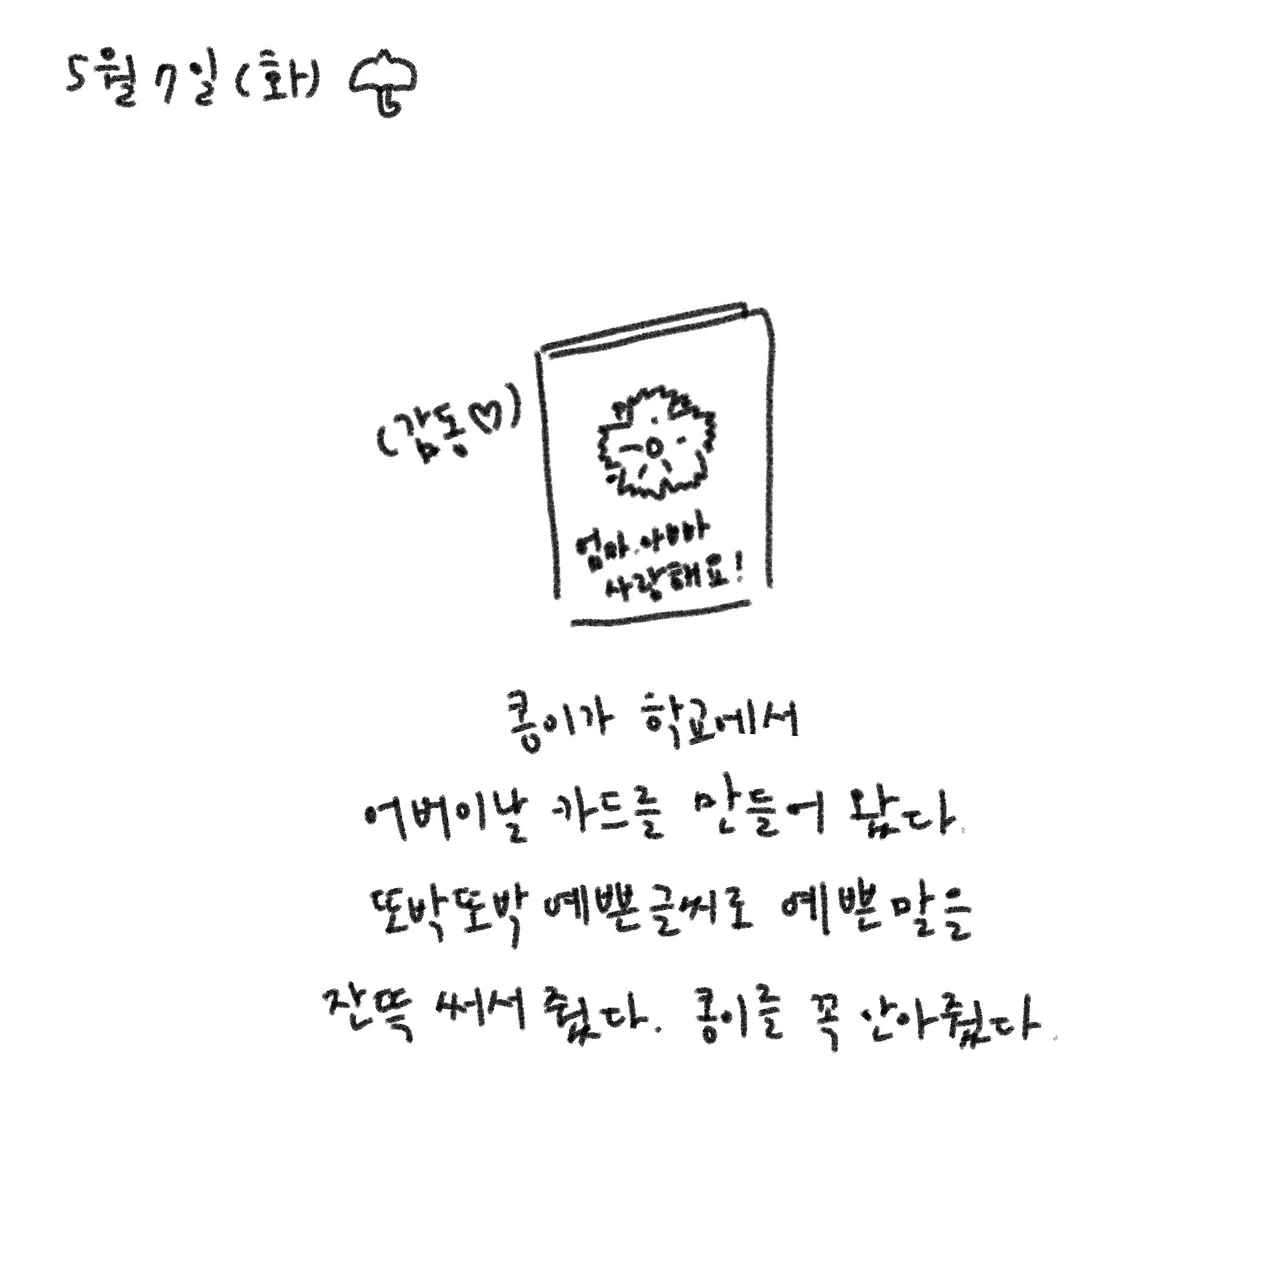 5월 7일 (화)
(감동♡)
엄마.아빠
사랑해요!
콩이가 학교에서
어버이날 카드를 만들어 왔다.
또박또박 예쁜 글씨로 예쁜 말을
잔뜩 써서 줬다. 콩이를 꼭 안아줬다.